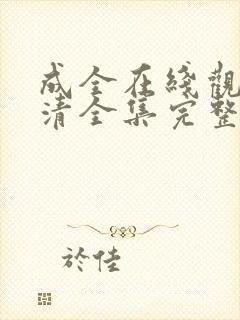 成全在綫觀
清全集完整
於佳